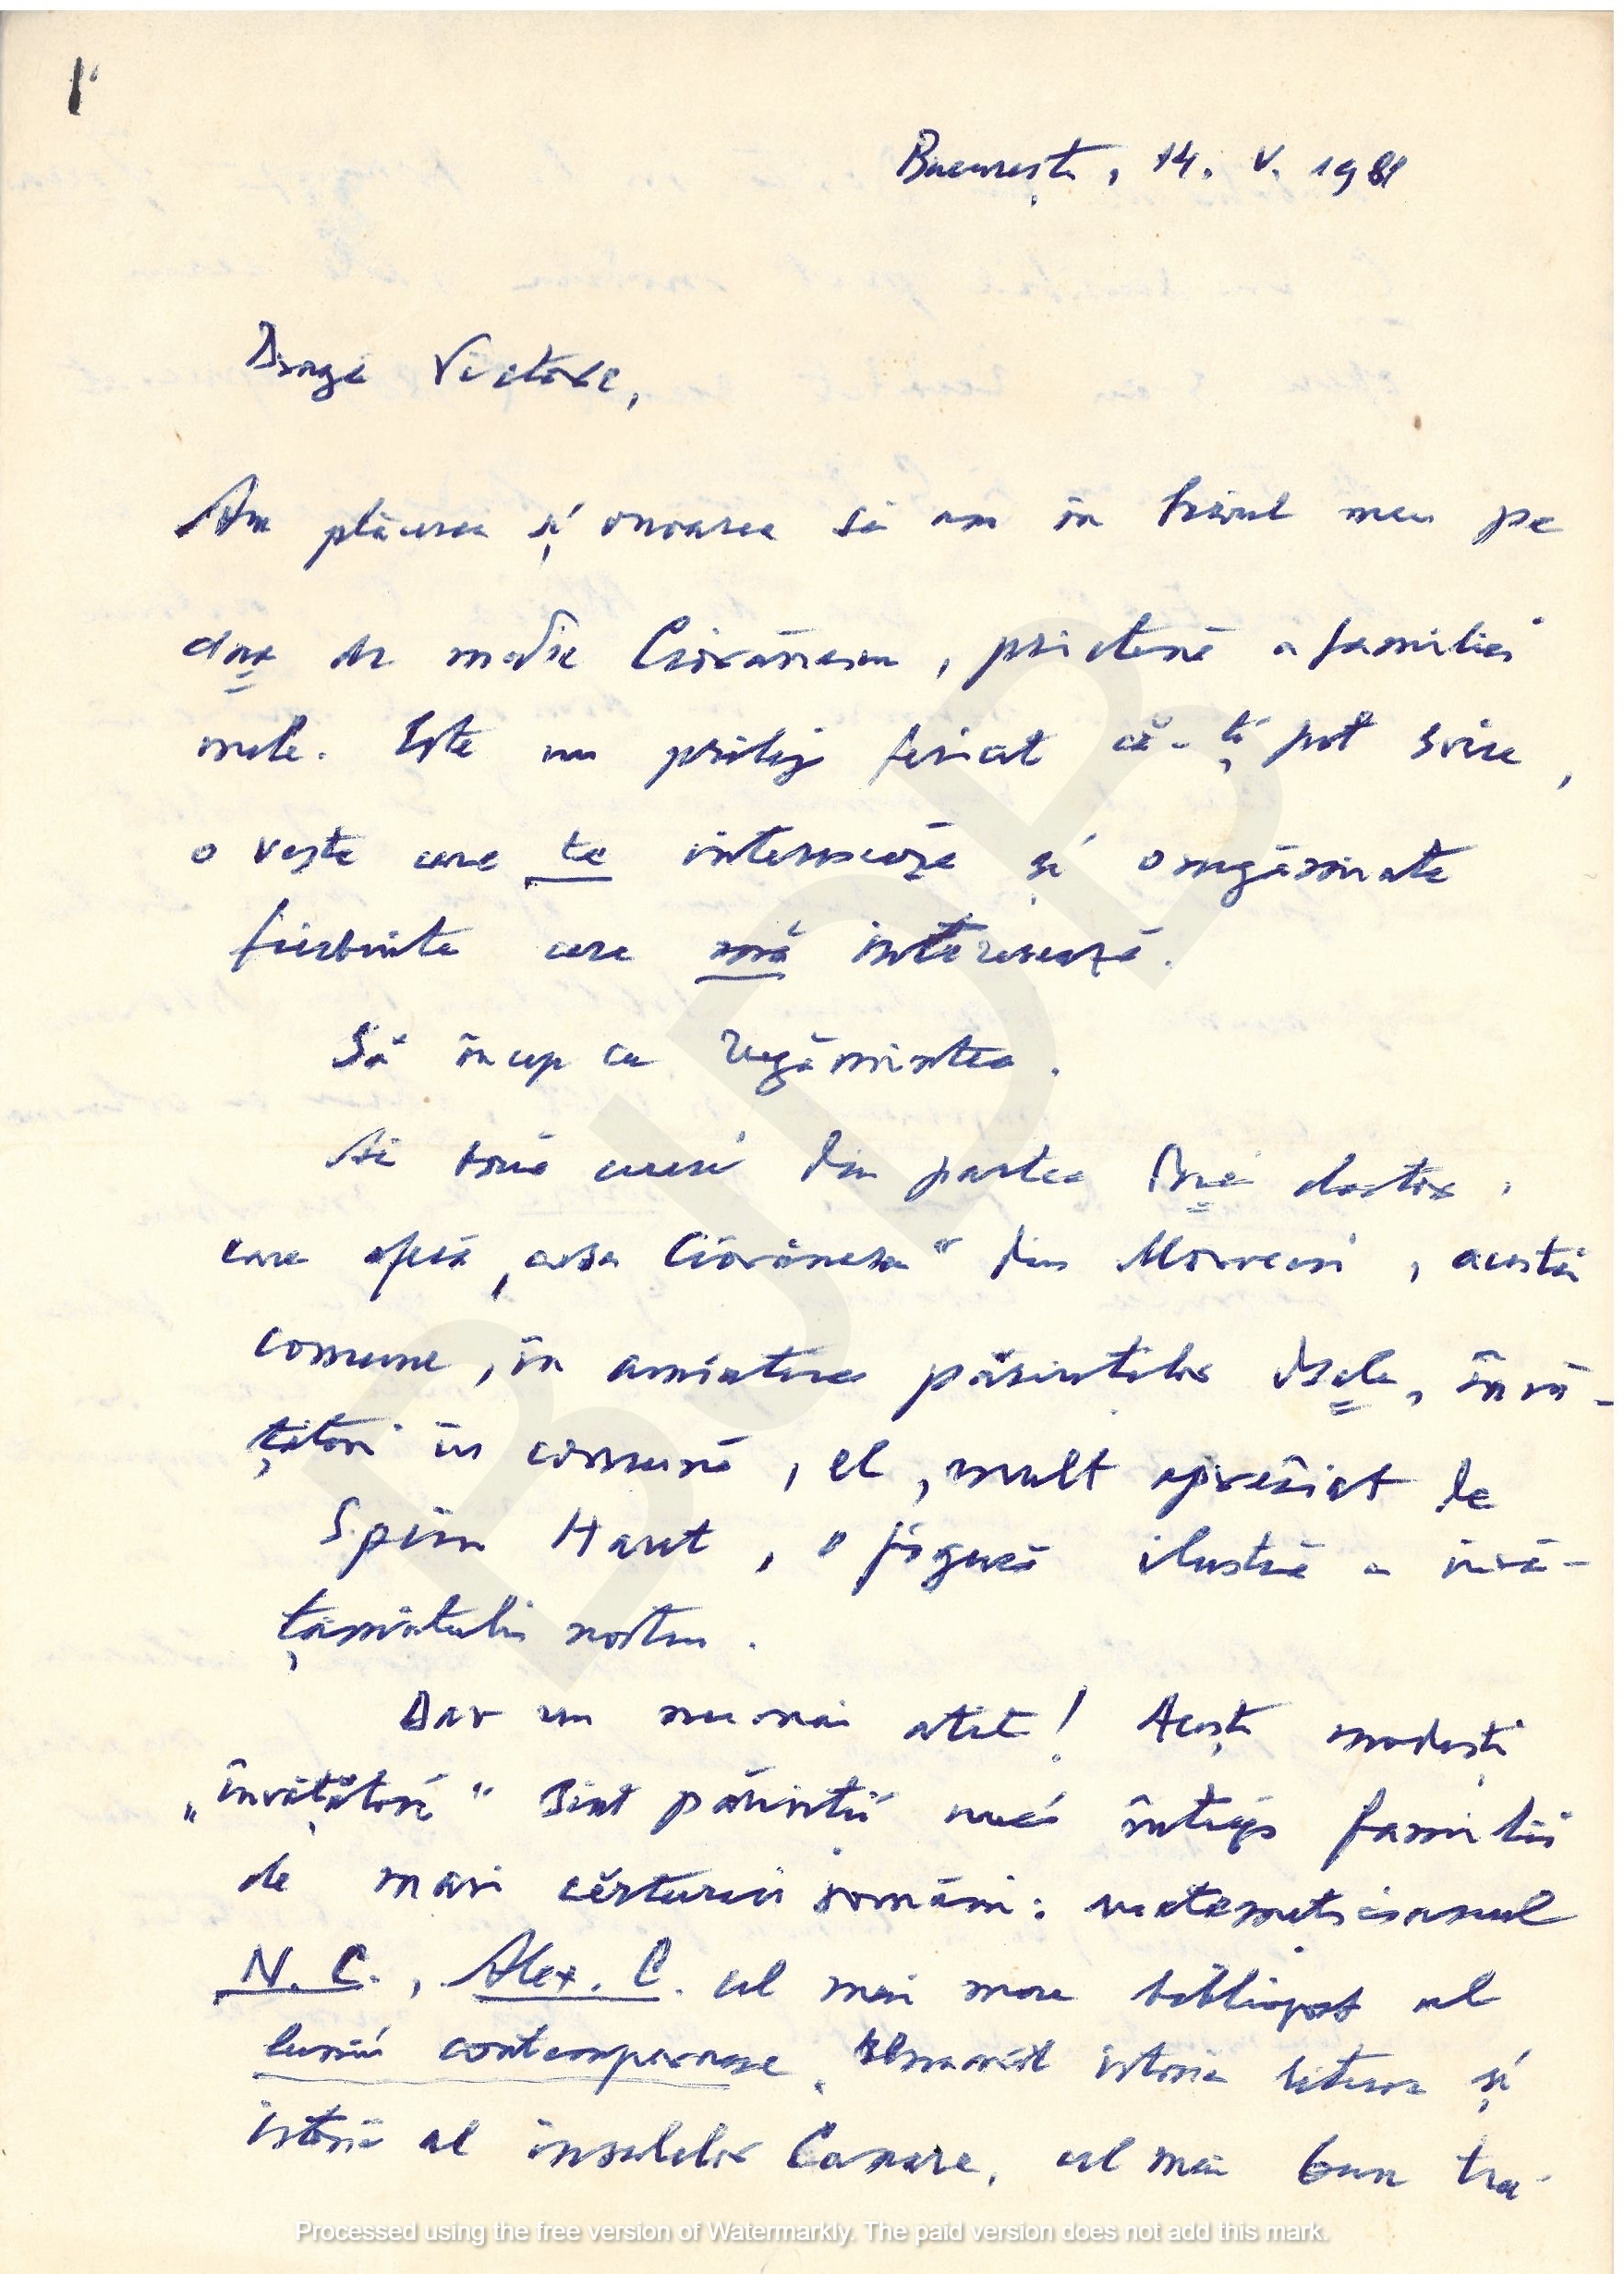 1
București, 14. V. 1981
Dragă Victore,
Am plăcerea și onoarea să am în biroul meu pe
dna dr medic Ciorănescu, prietenă a familiei
mele. Este un prilej fericit că-ți pot scrie,
o veste care te interesează și o rugăminte
fierbinte care mă interesează.
Să încep cu rugămintea.
Ai două cereri din partea Dnei doctor,
care oferă „casa Ciorănescu” din Moroeni, acestei
comune, în amintirea părinților Dsale, învă-
țători în comună, el, mult apreciat de
Spiru Haret, o figură ilustră a învă-
țămîntului nostru.
Dar nu numai atît! Acești modești
„învățători” sînt părinții unei întregi familii
de mari cărturari români: matematicianul
N. C., Alex. C. cel mai mare bibliograf al
lumii contemporane, istoric literar și
istoric al insulelor Canare, cel mai bun tra-
BJDB
Processed using the free version of Watermarkly. The paid version does not add this mark.